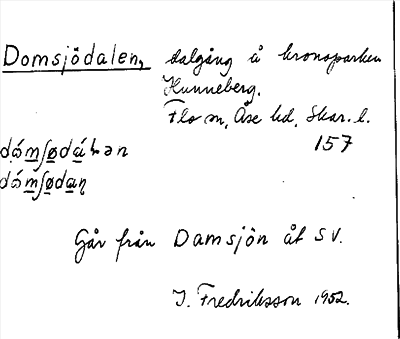 Domsjödalen, dalgång å kronoparken
Hunneberg.
Flo sn, Åse hd, Skar. l.
157
dǫ́mʃødáɫən
dǫ́mʃødaṇ
Går från Damsjön åt SV.
I. Fredriksson 1952.